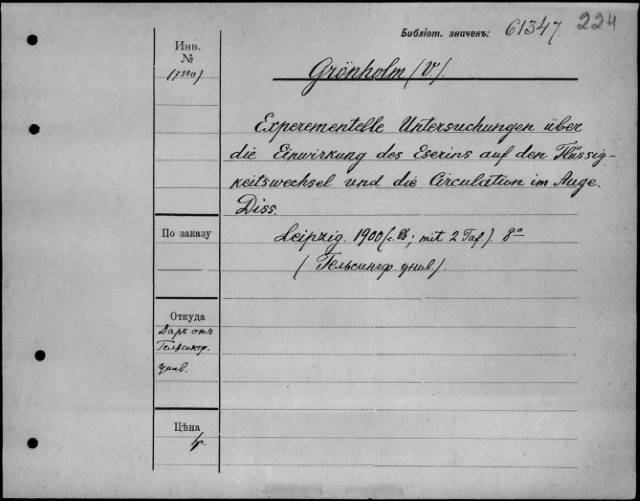 Библіот. значекъ: 61347. 224
Инв.
№
Grönholm (V.)
Experementelle Untersuchungen über
die Einwirkung des Eserins auf den Flüssig-
keitswechsel und die Circulation im Auge.
Diss.
По заказу
Leipzig. 1900 (с. ; mit 2 Taf.). 8°
(Гельсингф. унив.)
Откуда
Даръ отъ
Гельсингф.
унив.
Цѣна